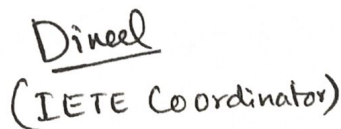 Dineel
(IETE Coordinator)